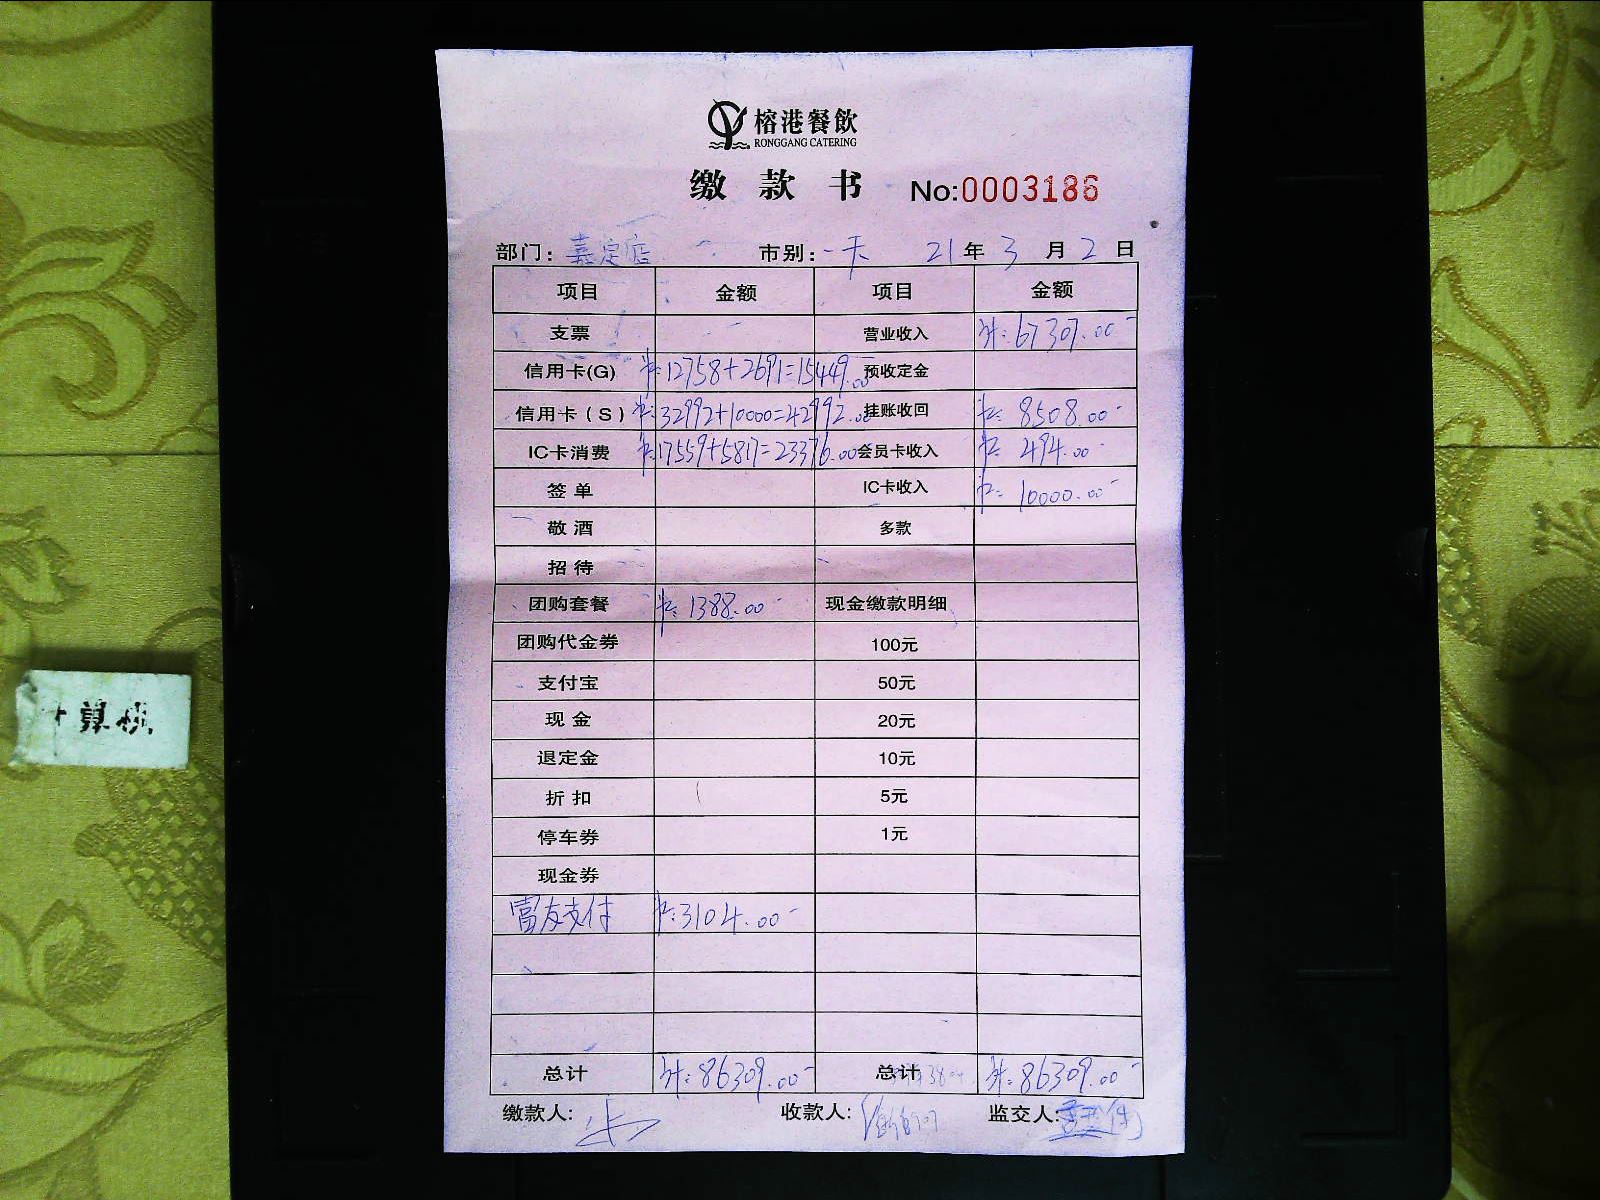 榕港餐飲
RONGGANG CATERING
缴款书 No:0003186
部门: 嘉定店 市别: 一天 21年3月2日
项目 金额 项目 金额
支票 营业收入 计: 67307.00
信用卡(G) 卡: 12758+2691=15449.00 预收定金
信用卡(S) 卡: 32992+10000=42992.00 挂账收回 卡: 8508.00
IC卡消费 卡: 17559+5817=23376.00 会员卡收入 卡: 494.00
签单 IC卡收入 卡: 10000.00
敬酒 多款
招待
团购套餐 卡: 1388.00 现金缴款明细
团购代金券 100元
支付宝 50元
现金 20元
退定金 10元
折扣 5元
停车券 1元
现金券
富友支付 卡: 3104.00
总计 计: 86309.00 总计 计: 86309.00
缴款人: 收款人: 监交人:
计算机